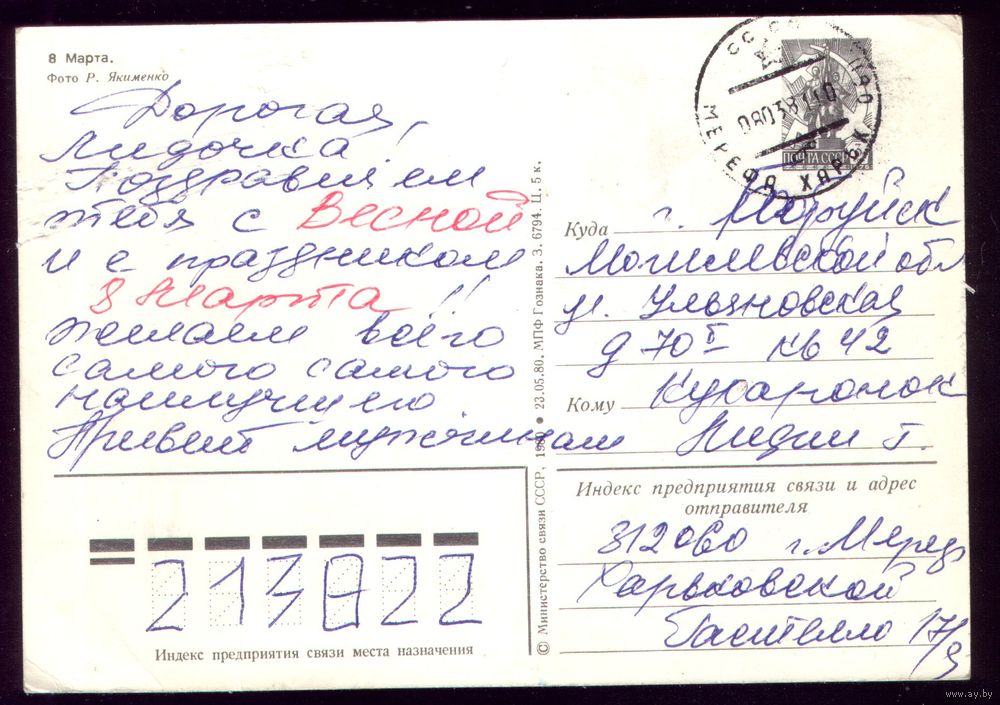 8 Марта.
Фото Р. Якименко
Дорогая,
Лидочка!
Поздравляем
тебя с Весной
и с праздником
8 Марта!!
желаем всего
самого самого
наилучшего.
Привет мужчинам
© Министерство связи СССР, 1980 • 23.05.80. МПФ Гознака. З. 6794. Ц. 5 к.
ПОЧТА СССР
МЕРЕФА ХАРЬК
Куда г.
Могилевской обл
ул. Ульяновская
д 70 Б кв 42
Кому Кухаронок
Лидии Г.
Индекс предприятия связи и адрес
отправителя
312060 г. Мерефа
Харьковской
Гастелло 17/9
213822
Индекс предприятия связи места назначения
www.ay.by